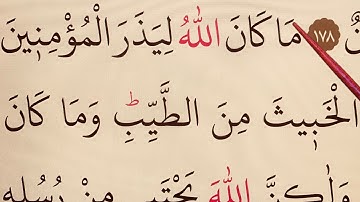 نٌ ١٧٨ مَا كَانَ اللّٰهُ لِيَذَرَ الْمُؤْمِنِينَ
الْخَبِيثَ مِنَ الطَّيِّبِ ۗ وَمَا كَانَ
وَلٰكِنَّ اللّٰهَ يَجْتَبِي مِنْ رُسُلِهِ